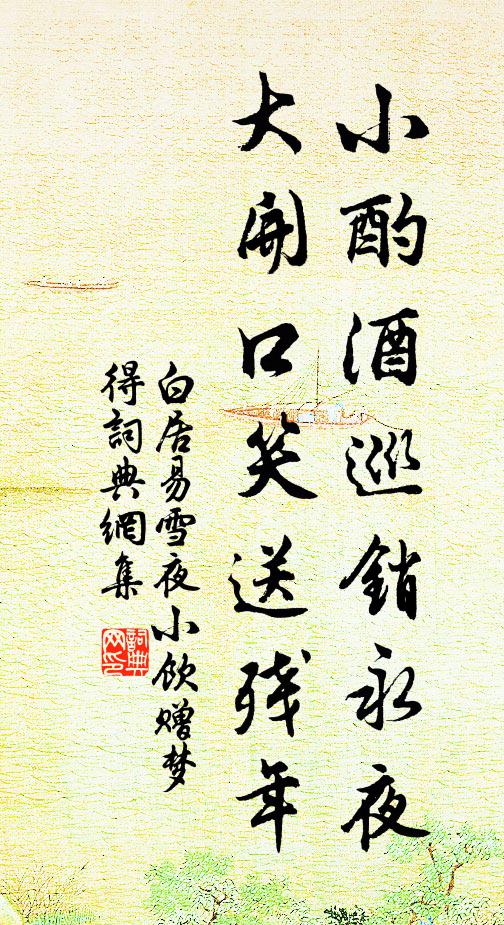 小酌酒巡銷永夜
大開口笑送残年
白居易雪夜小飲贈梦
得詞典網集
詞典
网印